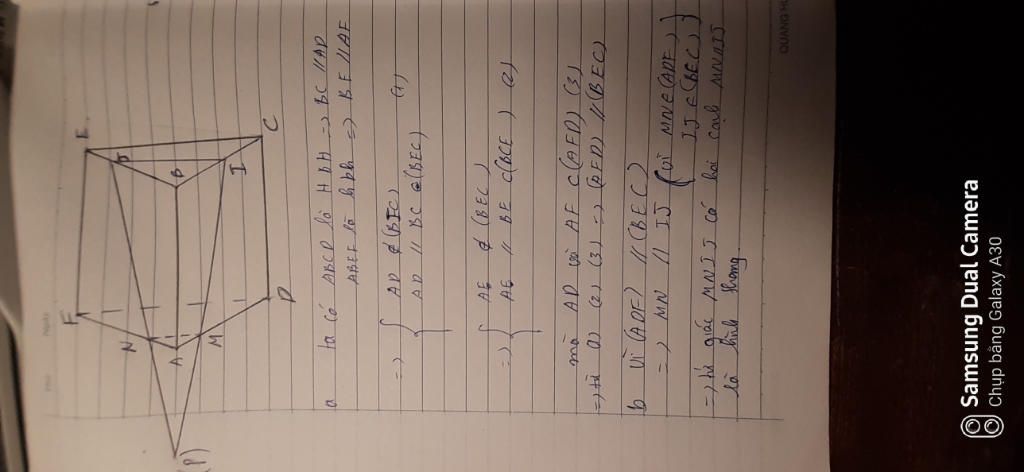 F
E
N
J
A
B
M
I
C
D
(P)
a ta có ABCD là HBH => BC // AD
ABEF là hbh => BE // AF
=> { AD ∉ (BEC)
AD // BC ∈ (BEC) (1)
=> { AF ∉ (BEC)
AF // BE ⊂ (BCE) (2)
mà AD và AF ⊂ (AFD) (3)
=> từ (1) (2) (3) => (AFD) // (BEC)
b vì (ADF) // (BEC)
=> MN // IJ (vì MN ∈ (ADF)
IJ ∈ (BEC))
=> tứ giác MNIJ có hai cạnh MN // IJ
là hình thang
QUANG HƯ
Samsung Dual Camera
Chụp bằng Galaxy A30